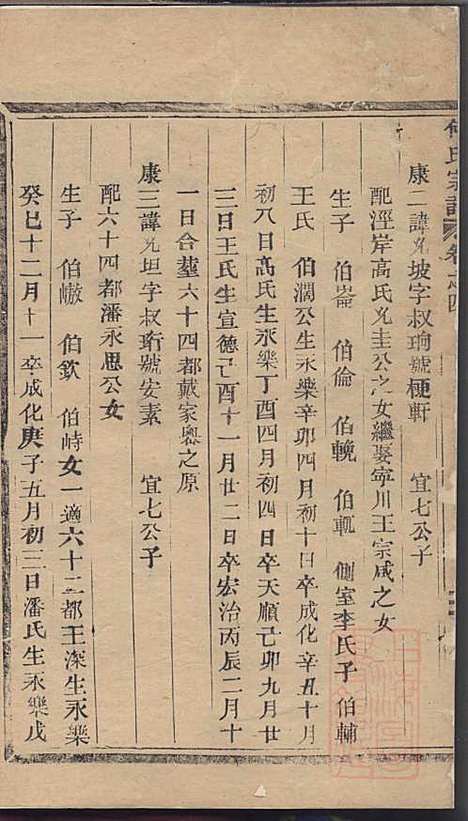 何氏宗譜 卷之四
康二諱允坡字叔珦號梗軒 宜七公子
配涇岸高氏允圭公之女繼娶寧川王宗咸之女
生子 伯崙 伯倫 伯輗 伯軏 側室李氏子 伯輔
王氏 伯濶公生永樂辛卯四月初十日卒成化辛丑十月
初八日高氏生永樂丁酉四月初四日卒天順己卯九月廿
三日王氏生宣德己酉十一月廿二日卒宏治丙辰二月十
一日合塟六十四都戴家㠗之原
康三諱允坦字叔珩號安素 宜七公子
配六十四都潘永思公女
生子 伯㠂 伯欽 伯峙女一適六十二都王深生永樂
癸巳十二月十一卒成化庚子五月初三日潘氏生永樂戊